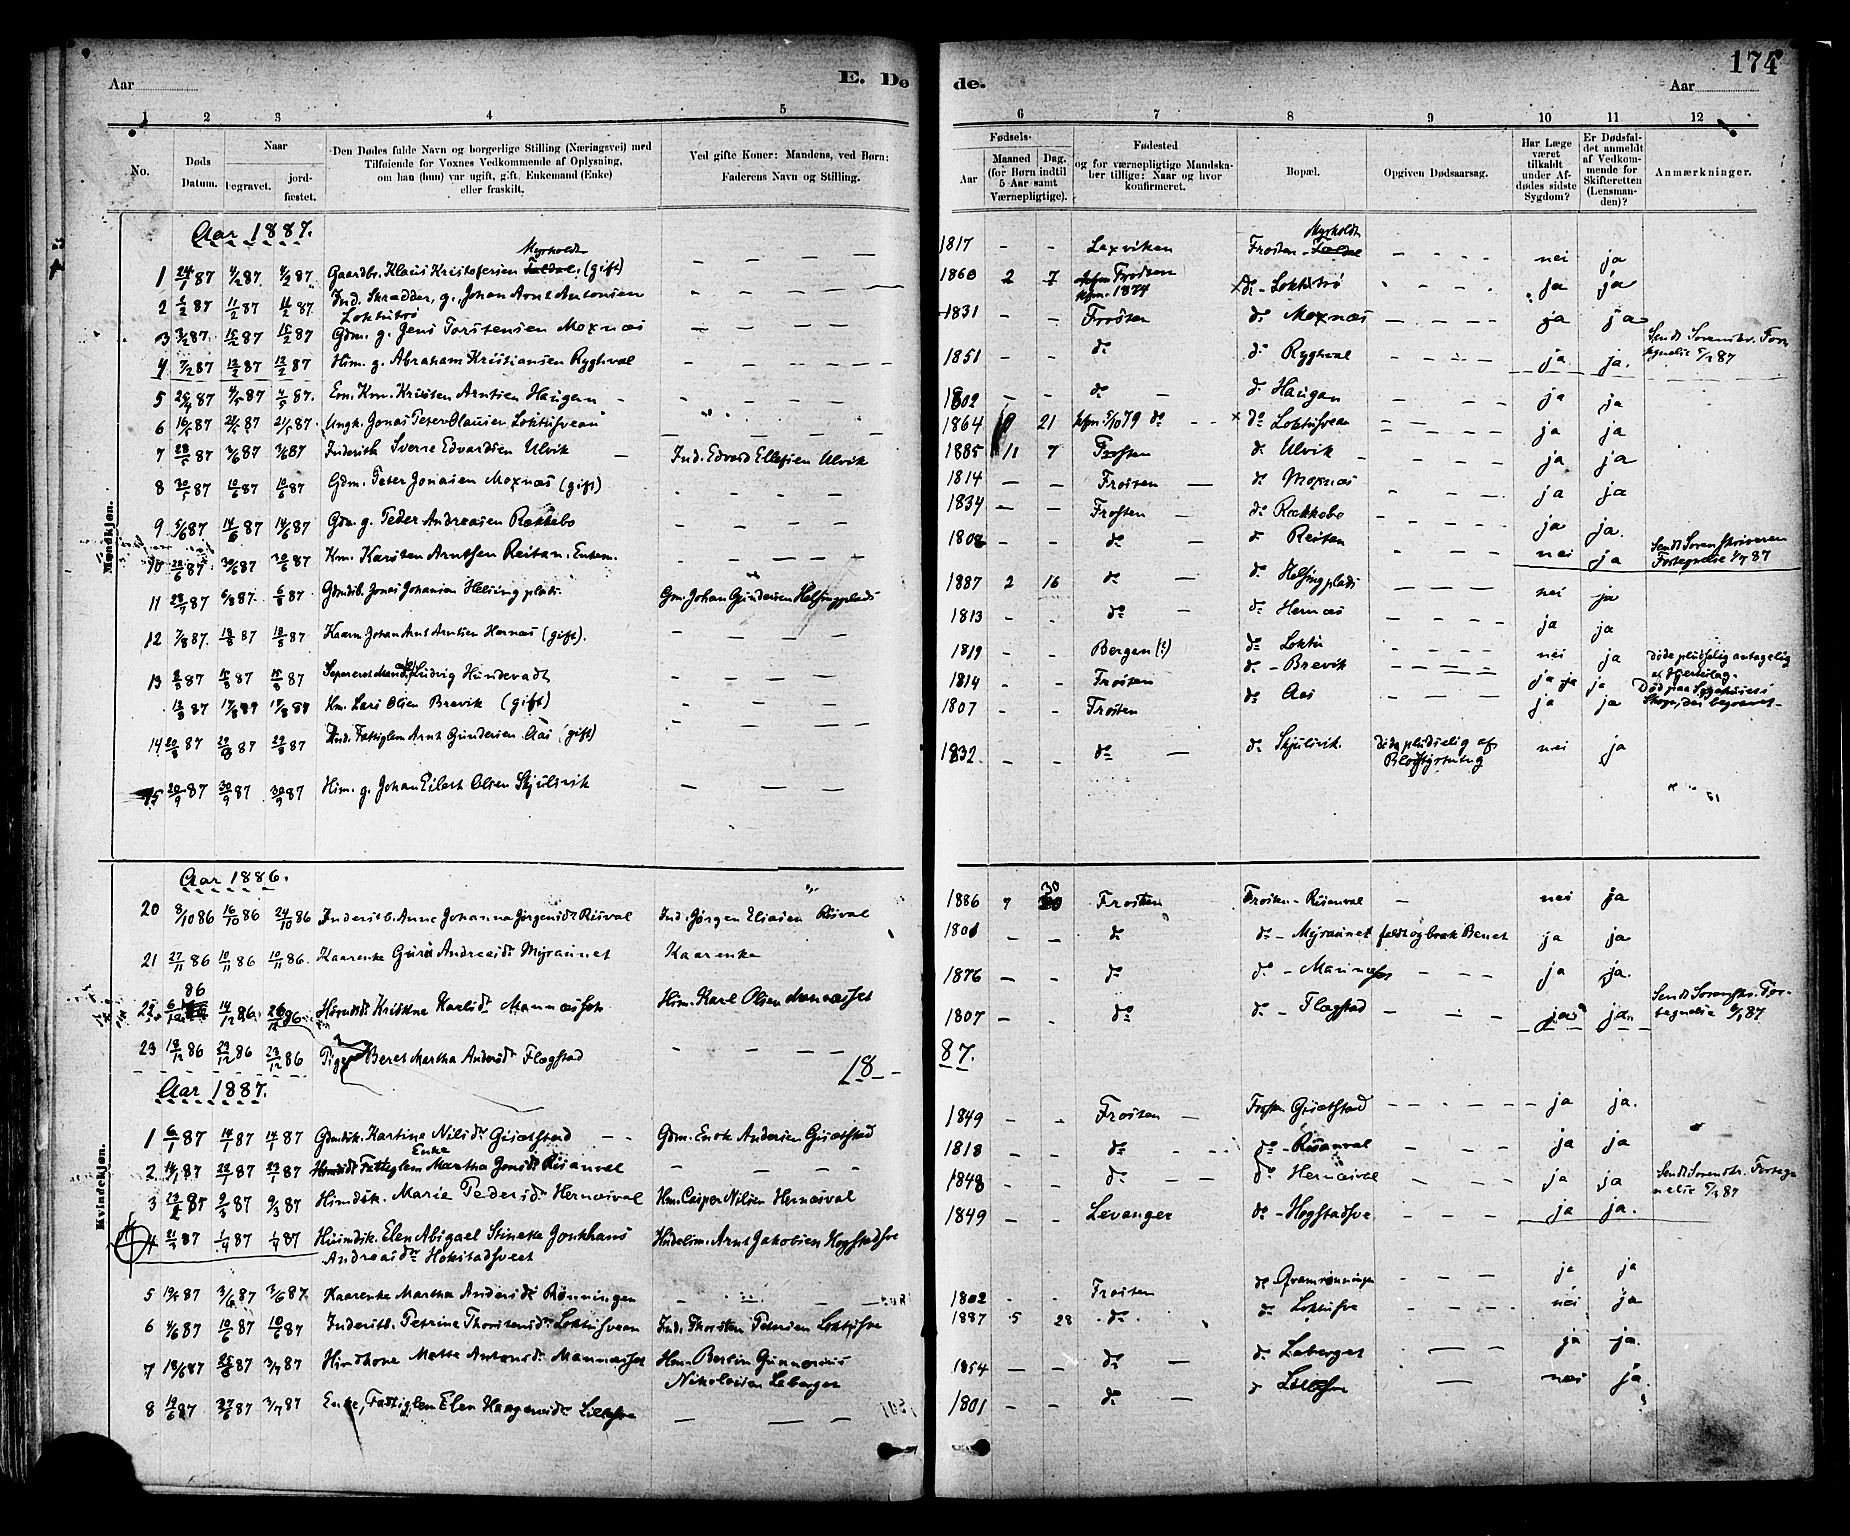 174
Aar
E. Dø
de.
Aar
1 2 3 4 5 6 7 8 9 10 11 12
No.
Døds Datum.
Naar
begravet.
jordfæstet.
Den Dødes fulde Navn og borgerlige Stilling (Næringsvei) med
Tilføiende for Voxnes Vedkommende af Oplysning,
om han (hun) var ugift, gift, Enkemand (Enke)
eller fraskilt.
Ved gifte Koner: Mandens, ved Børn:
Faderens Navn og Stilling.
Fødsels-
Aar
Maaned Dag.
(for Børn indtil
5 Aar samt
Værnepligtige).
Fødested
og for værnepligtige Mandska-
ber tillige: Naar og hvor
konfirmeret.
Bopæl.
Opgiven Dødsaarsag.
Har Læge
været
tilkaldt
under Af-
dødes sidste
Sygdom?
Er Dødsfal-
det anmeldt
af Vedkom-
mende for
Skifteretten
(Lensman-
den)?
Anmærkninger.
Mandkjøn.
Aar 1887.
Myrholdt
1 24/1 87 4/2 87 4/2 87. Gaardbr. Klaus Kristofersen (gift) — — — 1817 - - Laxviken Frosten - Myrholdt nei ja
2 11/2 87 11/2 87 Ind. Skrædder, g., Johan Arnt Antonsen Loktutrø 1860 2 7 Frosten Kfm. 1874 do - Loktutrø ja ja
3 3/2 87. 15/2 87 15/2 87 Gdm. g. Jens Torstensen Moxnæs 1831 - - Frosten do Moxnæs ja ja
4 7/2 87 12/2 87 12/2 87 Hsm. g. Abraham Kristiansen Ryghval 1851 - - do do Ryghval ja ja. Sendt Sorenskr. For-
tegnelse 87
5 87 4/5 87 4/5 87. Em. Km. Kristen Arntsen Haugan 1802 - - do do Haugan ja ja
6 16/5 87 21/5 87 21/5 87. Ungk. Jonas Peter Olausen Loktusveau 1864 21 Kfm 5/10 79 do do Loktusveau ja ja
7 28/5 87 3/6 87 3/6 87 Inderstb. Sverre Edvardsen Ulvik Ind. Edvard Ellefsen Ulvik 1885 11 7 Frosten do Ulvik ja ja
8 30/5 87 10/6 87 10/6 87 Gdm. Peter Jonasen Moxnæs (gift) 1814 - - Frosten do Moxnæs ja ja
9 5/6 87 14/6 87 14/6 87 Gdm g. Peder Andreasen Rækkebo 1834 - - Frosten do Rækkebo ja ja.
10 22/6 87 30/6 87 30/6 87 Km. Karsten Arntsen Reitan. Enkem. - - do do Reitan nei ja Sendt Sorenskriveren
Fortegnelse 1/7 87
11 28/7 87 6/8 87. 6/8 87 Gdmdsb. Jonas Johansen Helsingplads. Gm. Johan Gundersen Helsingplads 1887 2 16 do do Helsingplads nei ja
12 7/8 87. 18/8 87 18/8 87 Kaarm Johan Arnt Arntsen Hernæs (gift). 1813 - - do do Hernæs ja ja
13 8/8 87 15/8 87 15/8 87 Ludvig Hundevadt 1819 - - Bergen (?) do Loktu nei ja Døde pludselig antagelig
af Hjerteslag.
13/8 87 17/8 87 17/8 87 Hm. Lars Olsen Brevik (gift) 1814 - - Frosten do - Brevik ja ja Død paa Sygehuset i
Skogn, der begravet -
14 20/8 87 29/8 87 29/8 87 Ind. Fattiglem Arnt Gundersen Aas (gift) 1807 - - Frosten do Aas ja ja
15 20/9 87 30/9 87 30/9 87 Hsm. g. Johan Eilert Olsen Skjulsvik 1832. - - do do Skjulsvik. Døde pludselig af
Blodstyrtning nei ja
Kvindekjøn.
Aar 1886.
20 8/10 86 16/10 86 24/10 86 Inderstb. Anne Johanna Jørgensdt Risval Ind. Jørgen Eliasen Risval 1886 7 30 Frosten Frosten - Risanval — nei ja
21 27/11 86 10/11 86 10/11 86. Kaarenke Guru Andreasdt Myraunet Kaarenke - - do do - Myraunet faldt og brak Benet ja ja
22 6/12 86 14/12 86. 26/12 86 Kristine Karlsdt Mannæsset Hsm. Karl Olsen Mannæsset 1876 - - do do - Mannæsset ja ja.
23 18/12 86 29/12 86 29/12 86 Pige Beret Martha Andersdt Flagstad 1807 - - do do - Flagstad ja ja. Sendt Sorenskr. For-
tegnelse 87
18 — 87.
Aar 1887.
1 6/1 87 14/1 87 14/1 87 Gdmdsk. Kartine Nilsdt Gisætstad Gdm. Enok Andersen Gisætstad 1849 - - Frosten Frosten Gisætstad ja ja.
2 14/1 87 22/1 87 23/1 87 Enke Fattiglem Martha Jonsdt Risanval 1818 - - do do - Risanval ja ja
3 87 87 9/3 87 Hsmdsk. Marie Pedersdt Hernæsval Hm. Casper Nilsen Hernæsval 1848 - - do do Hernæsval ja ja Sendt Sorenskr. Forteg-
nelse 87
4 21/3 87 1/4 87 1/4 87 Elen Abigael Stinette Jonkhans
Andreasdt Hokstadsveet Arnt Jakobsen Hogstadsve 1849 - - Levanger do - Hogstadsve ja ja.
5 87 3/6 87 3/6 87 Kaarenke Martha Andersdt Rønningen 1802 - - Frosten do Qvamrønningen ja ja
6 4/6 87 10/6 87 10/6 87 Inderstb. Petrine Thorstensdt Loktusveau Ind. Thorsten Petersen Loktusve 1887 5 28 do. do Loktusve nei ja
7 18/6 87 25/6 87 3/7 87 Mette Antonsdt Mannæsset Hsm. Berlin Gunnerius
Nikolaisen Leberget 1854 - - do do Leberget ja ja.
8 19/6 87 27/6 87 3/7 87 Enke, Fattiglem Elen Haagensdt Lillesve 1801 - - do do Lillesve — nei ja